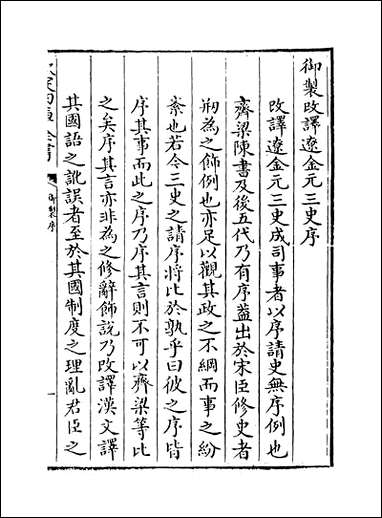 御製改譯遼金元三史序
改譯遼金元三史成司事者以序請史無序例也
齊梁陳書及後五代乃有序葢出於宋臣修史者
刱為之飾例也亦足以觀其政之不綱而事之紛
紊也若今三史之請序將比於孰乎曰彼之序皆
序其事而此之序乃序其言則不可以齊梁等比
之矣序其言亦非為之修辭飾說乃改譯漢文譯
其國語之訛誤者至於其國制度之理亂君臣之
御製序
一